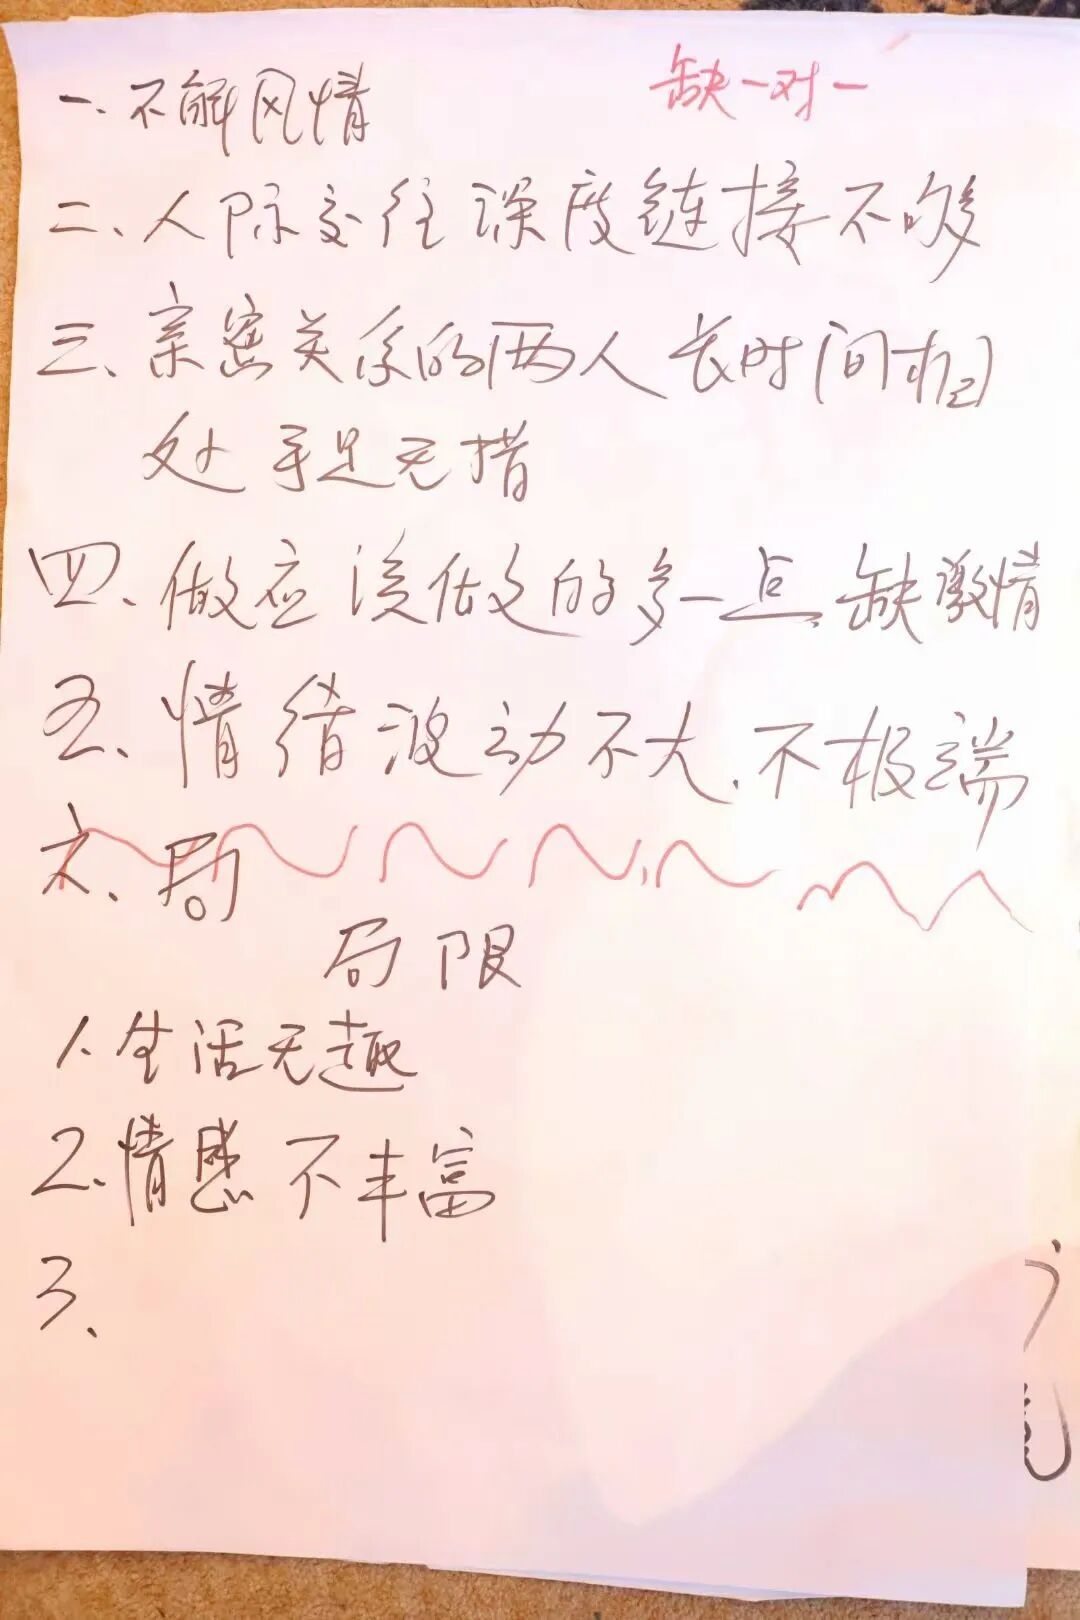 缺一对一
一、不解风情
二、人际交往深度链接不够
三、亲密关系的两人长时间相
处手足无措
四、做应该做的多一点、缺激情
五、情绪波动不大、不极端
六、局
局限
1、生活无趣
2、情感不丰富
3、